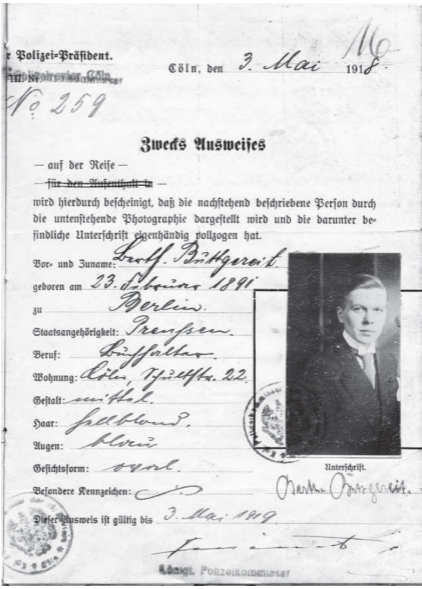 r Polizei-Präsident.
16
Cöln, den 3. Mai 1918.
No 259
Zwecks Ausweises
— auf der Reise —
— für den Aufenthalt in —
wird hierdurch bescheinigt, daß die nachstehend beschriebene Person durch
die untenstehende Photographie dargestellt wird und die darunter be-
findliche Unterschrift eigenhändig vollzogen hat.
Vor- und Zuname: Berth. Buttgereit
geboren am 23. Februar 1891
zu Berlin.
Staatsangehörigkeit: Preussen.
Beruf: Buchhalter.
Wohnung: Cöln, 22.
Gestalt: mittel.
Haar: hellblond.
Augen: blau
Gesichtsform: oval.
Besondere Kennzeichen:
Unterschrift.
Berth. Buttgereit.
Dieser Ausweis ist gültig bis 3. Mai 1919.
Königl. Polizeikommissar